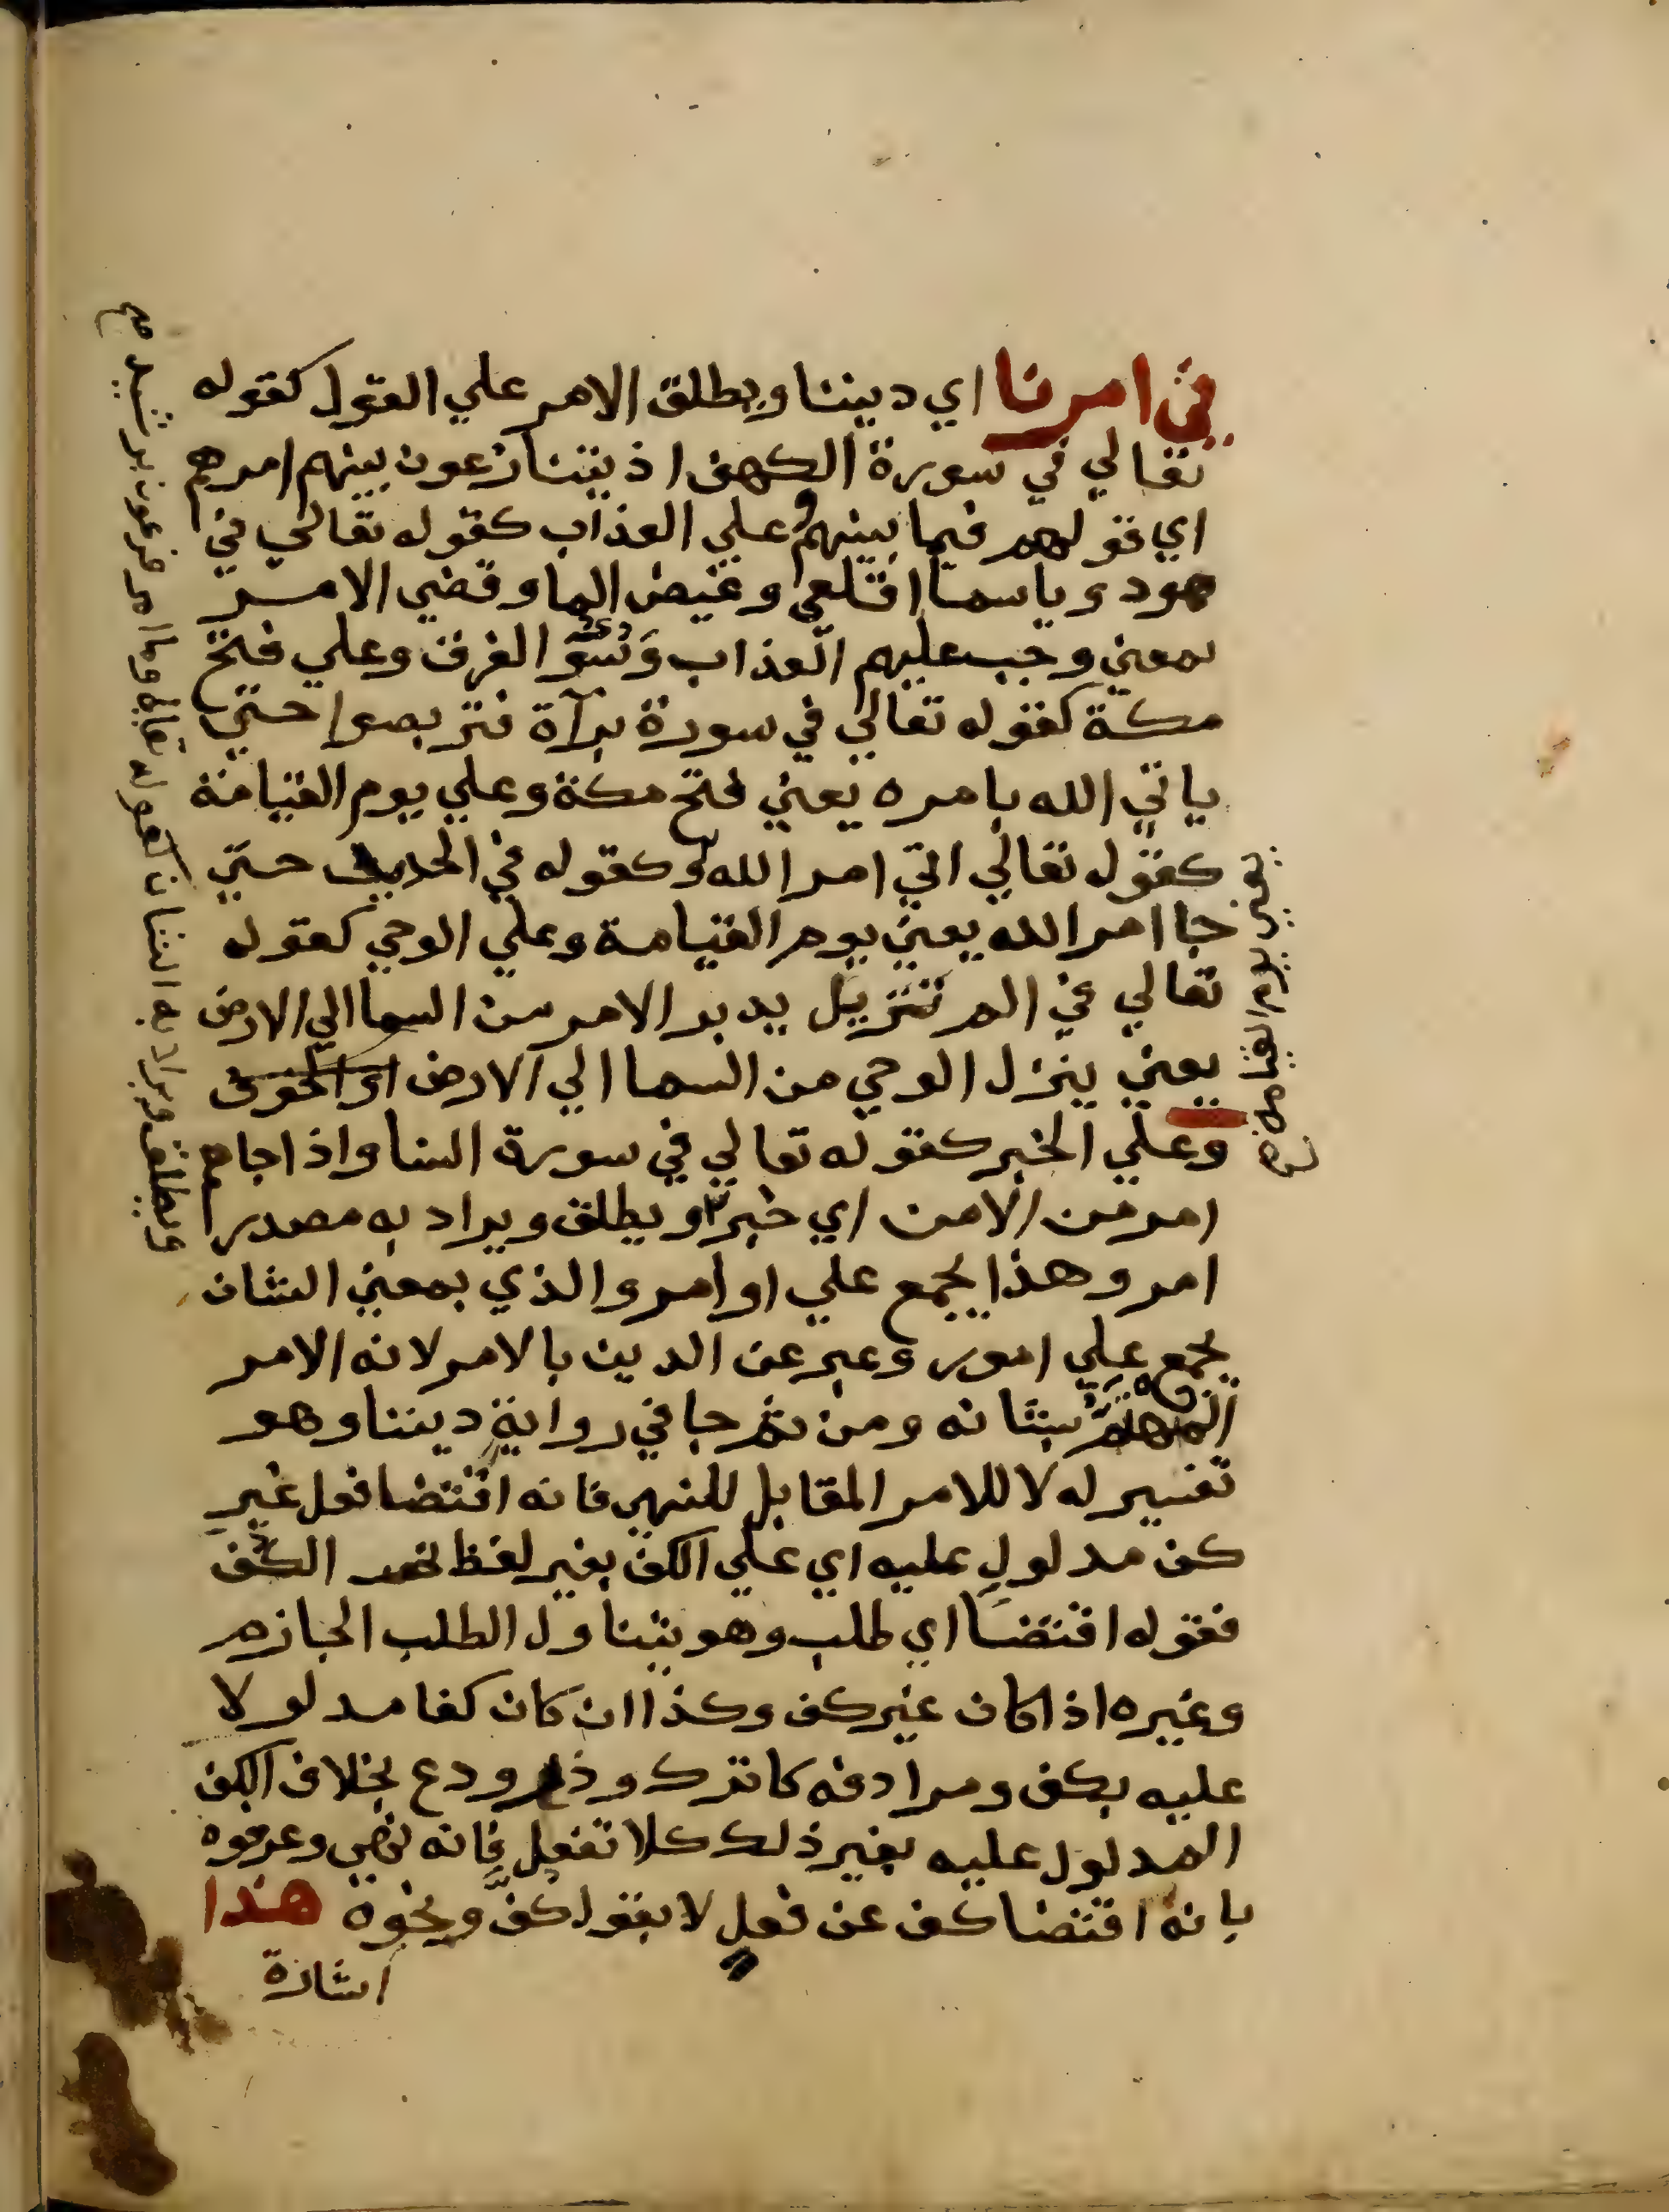 في امرنا اي ديننا ويطلق الامر علي القول كقوله
تعالي في سورة الكهف اذ يتنازعون بينهم امرهم
اي قولهم فيما بينهم وعلي العذاب كقوله تعالي في
هود ويا سما اقلعي وغيض الما وقضي الامر
بمعني وجب عليهم العذاب الغرق وعلي فتح
مكة كقوله تعالي في سورة برآة فتربصوا حتي
ياتي الله بامره يعني فتح مكة وعلي يوم القيامة
كقول تعالي اتي امر الله وكقوله في الحديد حتي
جا امر الله يعني يوم القيامة وعلي الوحي كقوله
تعالي في الم تنزيل يدبر الامر من السما الي الارض
يعني ينزل الوحي من السما الي الارض
وعلي الخبر كقوله تعالي في سورة النسا واذا جاهم
امر من الامن اي خبر ويطلق ويراد به مصدر
امر وهذا يجمع علي اوامر والذي بمعني الشان
يجمع علي امور وعبر عن الدين بالامر لانه الامر
المهتم بشانه ومن ثم جا في رواية ديننا وهو
تفسير له لا للامر المقابل للنهي فانه اقتضا فعل غير
كف مدلول عليه اي علي الكف بغير لفظ نحو الكف
فقوله اقتضا اي طلب وهو يتناول الطلب الجازم
وغيره اذا كان غير كف وكذا ان كان كفا مدلولا
عليه بكف ومرادفه كاترك وذر ودع بخلاف الكف
المدلول عليه بغير ذلك كلا تفعل فانه نهي وعرفوه
بانه اقتضا كف عن فعل لا بقول كف ونحوه هذا
اشارة
ويطلق ويراد به الشان كقوله تعالي وما امر فرعون برشيد صح